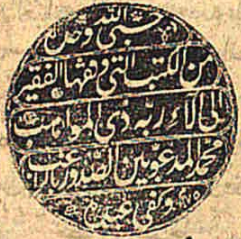 حسبي الله وحده
من الكتب التي وقفها الفقير
الى آلاء ربه ذي المواهب
محمد المدعو بين الصدور راغب
وكفى عبده